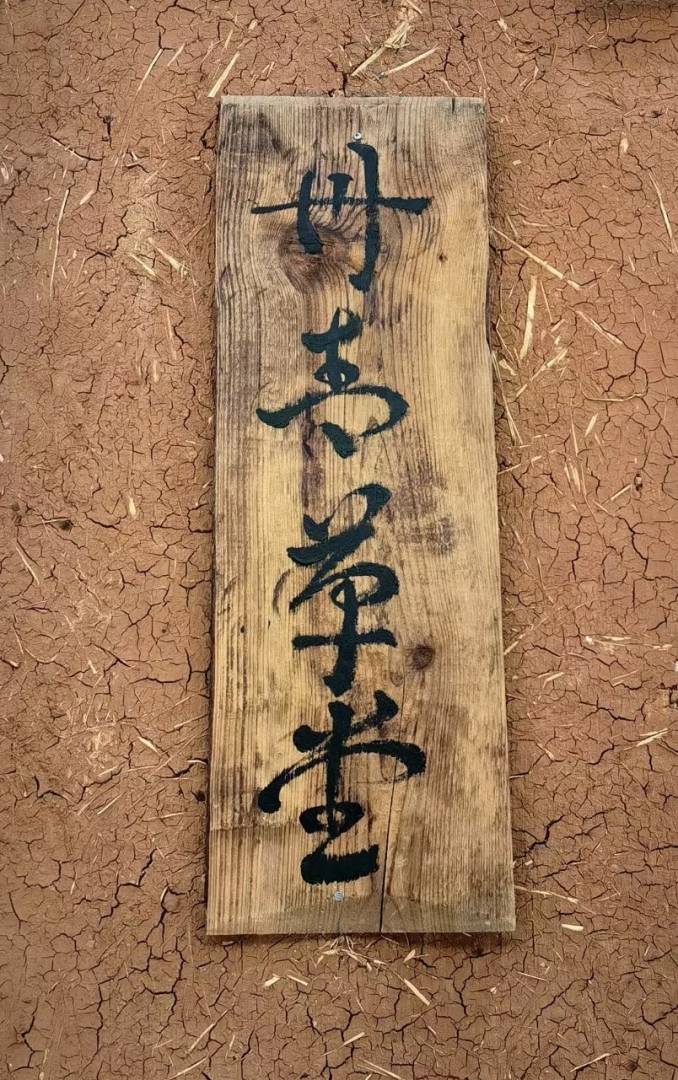 丹青草堂